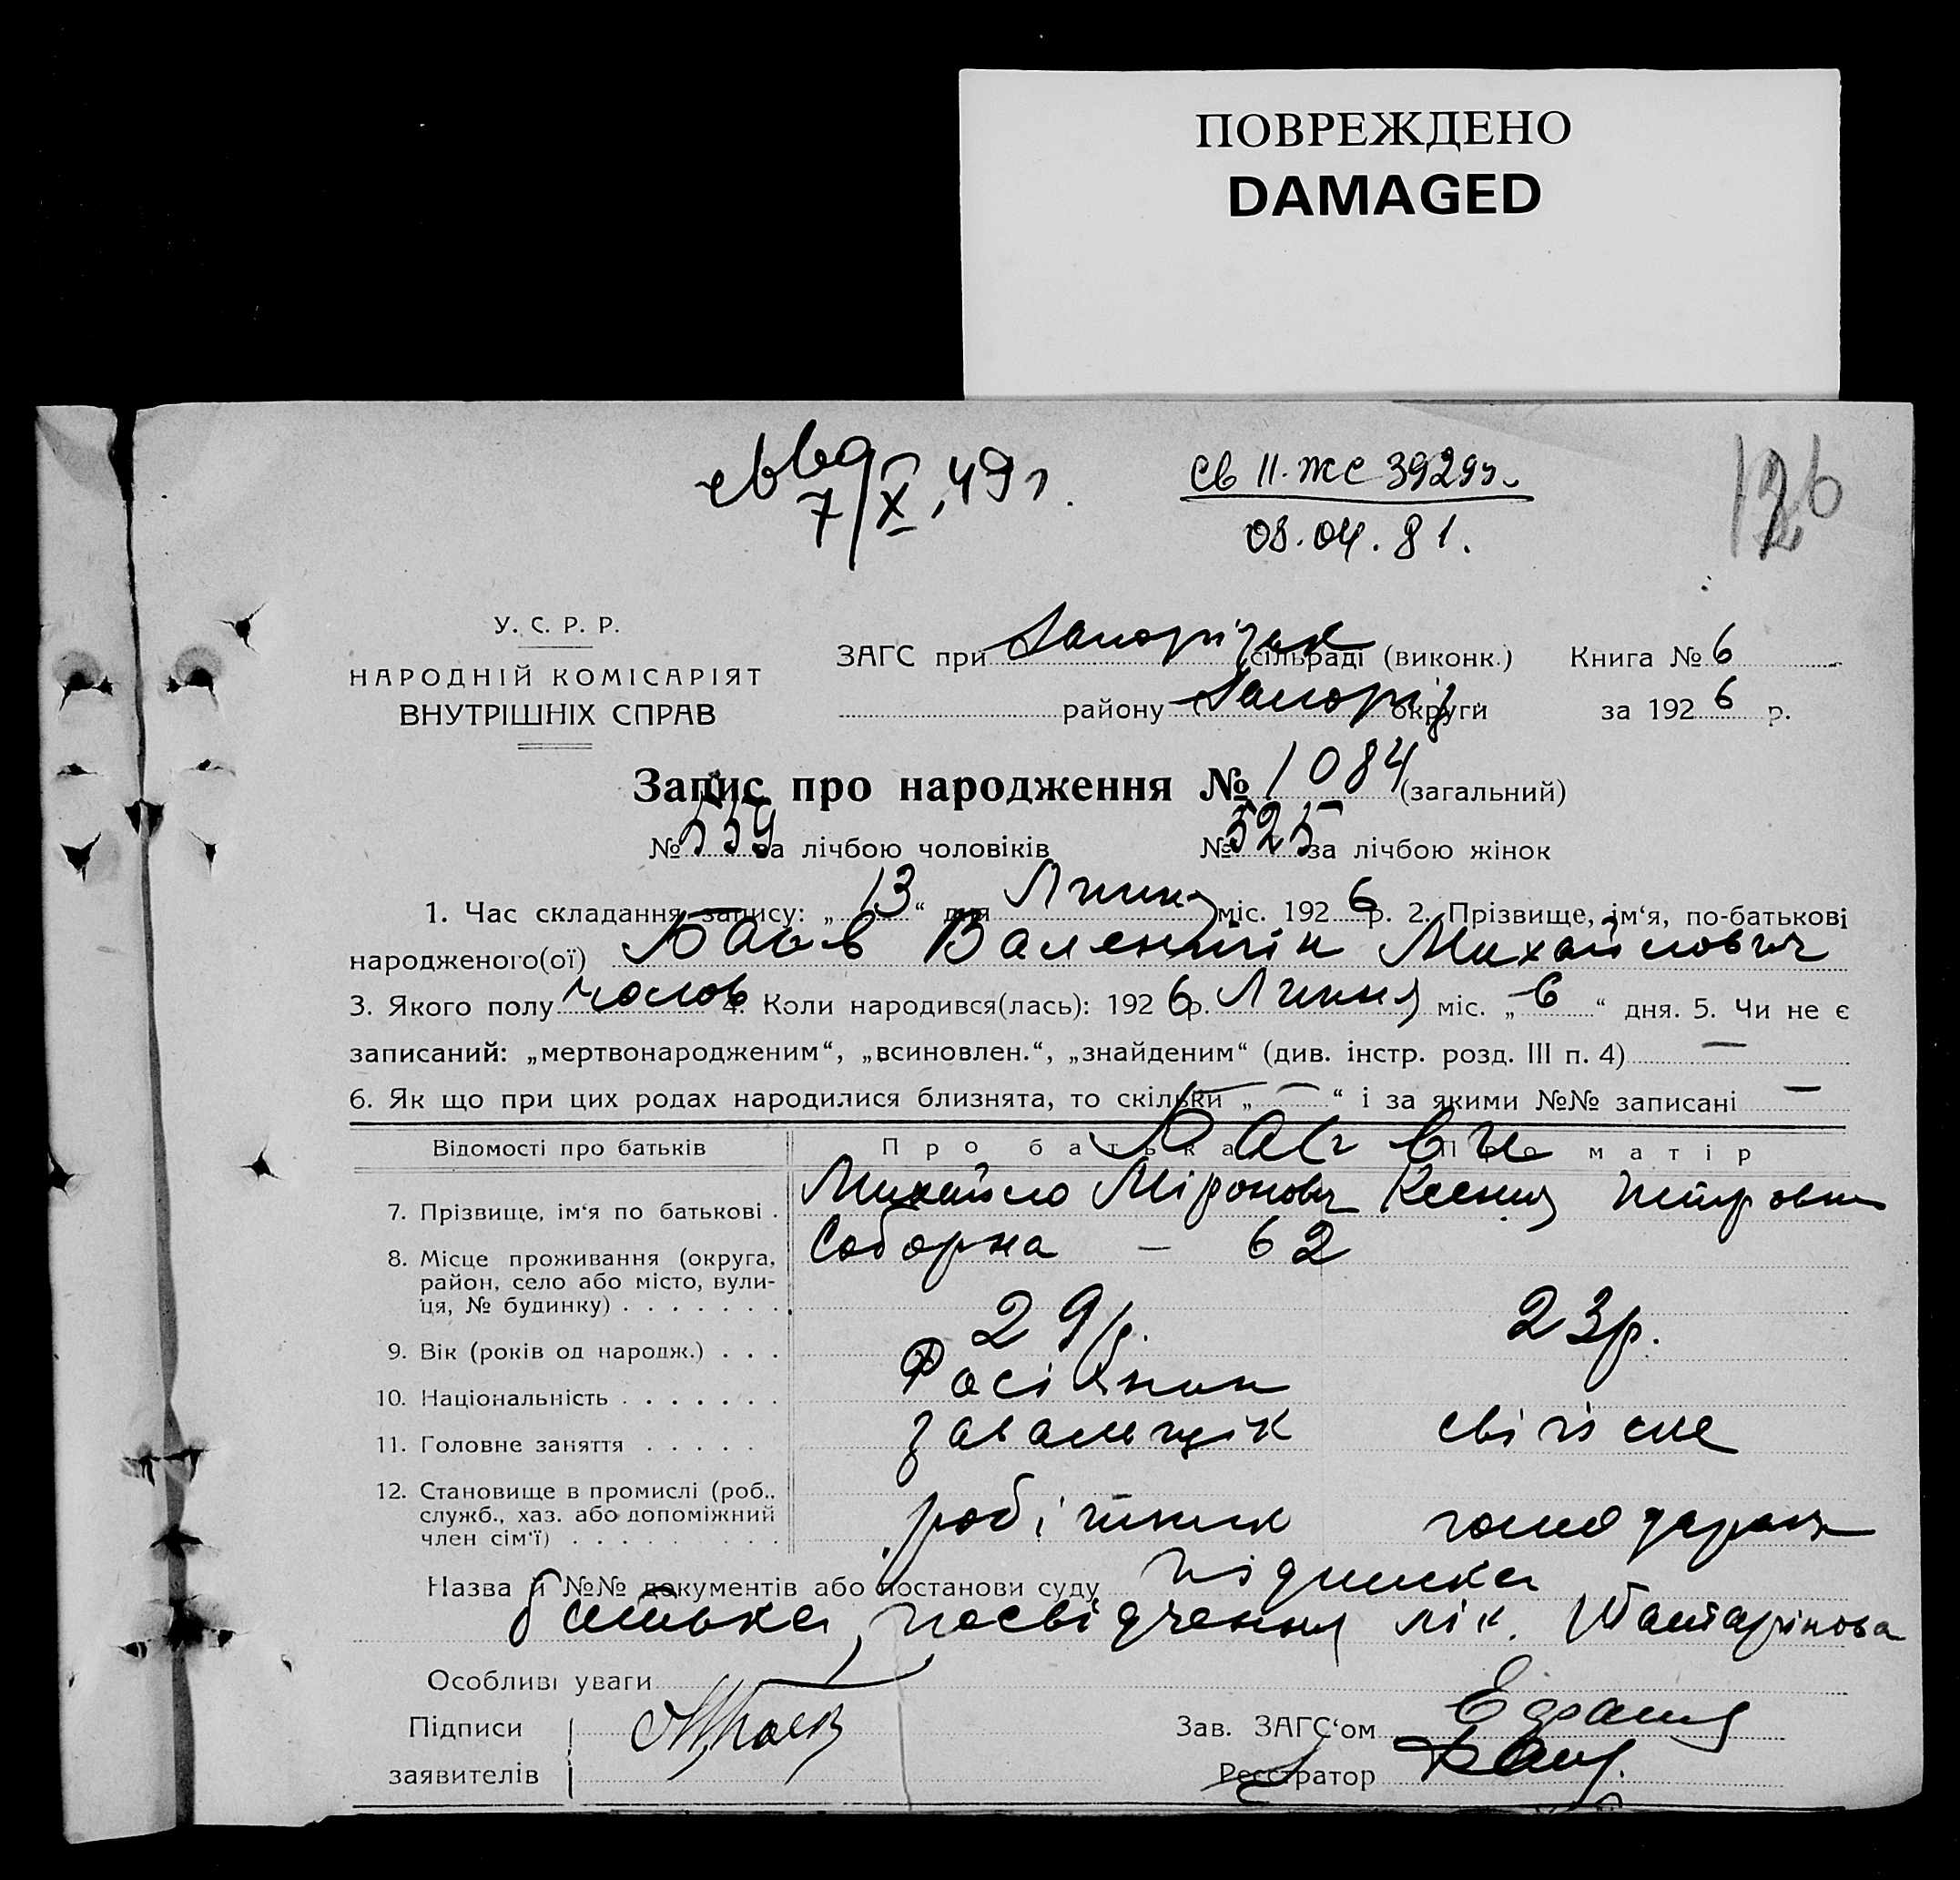 ПОВРЕЖДЕНО
DAMAGED
7/X, 49 г.
св II-ЖС 3929
08.04.81.
126
У. С. Р. Р.
НАРОДНІЙ КОМІСАРІЯТ
ВНУТРІШНІХ СПРАВ
ЗАГС при Запорізьк (сільраді (виконк.) Книга № 6
району Запоріз округи за 1926 р.
Запис про народження № 1084 (загальний)
№ 559 за лічбою чоловіків № 525 за лічбою жінок
1. Час складання запису: „ 13 “ дня Липня міс. 1926 р. 2. Прізвище, ім‘я, по-батькові
народженого(ої) Баєв Валентін Михайлович
3. Якого полу чолов 4. Коли народився(лась): 1926 р. Липня міс. „ 6 “ дня. 5. Чи не є
записаний: „мертвонародженим“, „всиновлен.“, „знайденим“ (див. інстр. розд. III п. 4) —
6. Як що при цих родах народилися близнята, то скільки „ — “ і за якими №№ записані —
Відомості про батьків Про батька Про матір
Баєви
7. Прізвище, ім‘я по батькові . Михайло Міронович Ксения Петровна
8. Місце проживання (округа, Соборна — 62
район, село або місто, вули-
ця, № будинку) . . . . . . .
9. Вік (років од народж.) . . . 29 р. 23 р.
10. Національність . . . . . . .
11. Головне заняття . . . . . завальщік
12. Становище в промислі (роб.. робітник господарка
служб., хаз. або допоміжний
член сім‘ї) . . . . . . . . .
Назва й №№ документів або постанови суду підписка
батька, посвідчення лік.
Особливі уваги
Підписи М Баев Зав. ЗАГС‘ом
заявителів Реєстратор